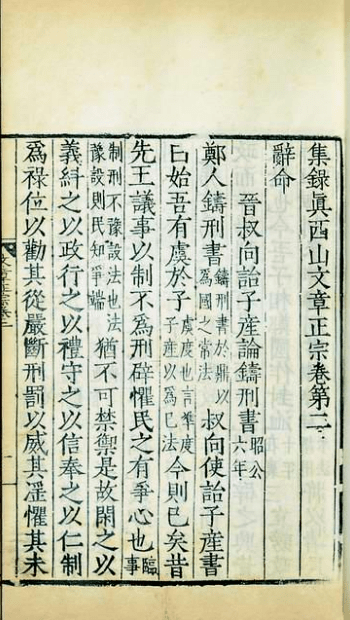 集錄眞西山文章正宗卷第二
辭命
晉叔向詒子產論鑄刑書昭公六年
鄭人鑄刑書鑄刑書於鼎以為國之常法叔向使詒子產書
曰始吾有虞於子虞度也言準度子產以為已法今則已矣昔
先王議事以制不為刑辟懼民之有爭心也臨事
制刑不豫設法也法豫設則民知爭端猶不可禁禦是故閑之以
義糾之以政行之以禮守之以信奉之以仁制
為祿位以勸其從嚴斷刑罰以威其淫懼其未